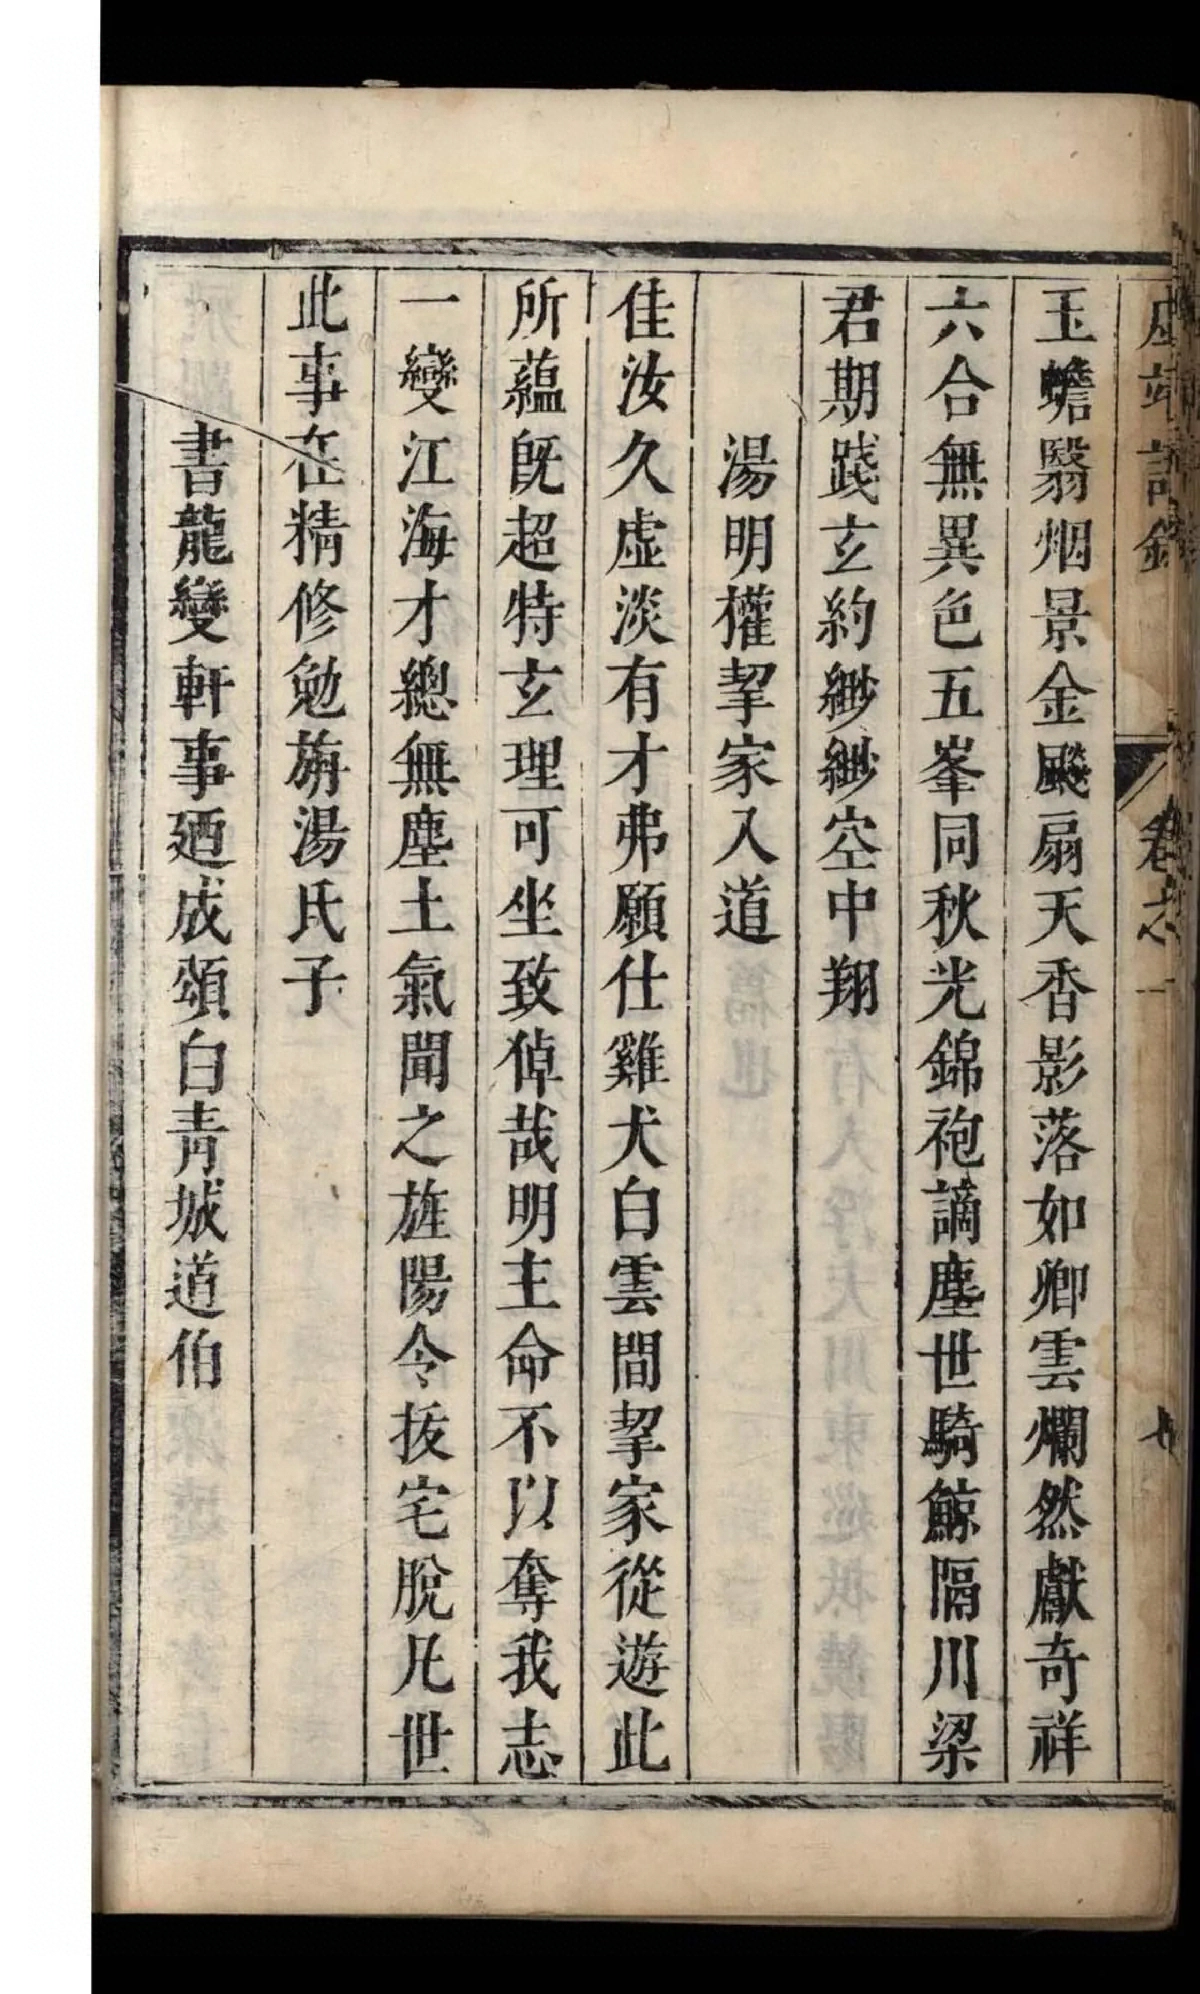 玉蟾翳烟景金飈扇天香影落如卿雲爛然獻奇祥
六合無異色五峯同秋光錦袍謫塵世騎鯨隔川梁
君期踐玄約緲緲空中翔
湯明權挈家入道
佳汝久虛淡有才弗願仕雞犬白雲間挈家從遊此
所蘊旣超特玄理可坐致倬哉明主命不以奪我志
一變江海才總無塵土氣聞之旌陽令拔宅脫凡世
此事在精修勉旃湯氏子
書龍變軒事廼成頌白青城道伯